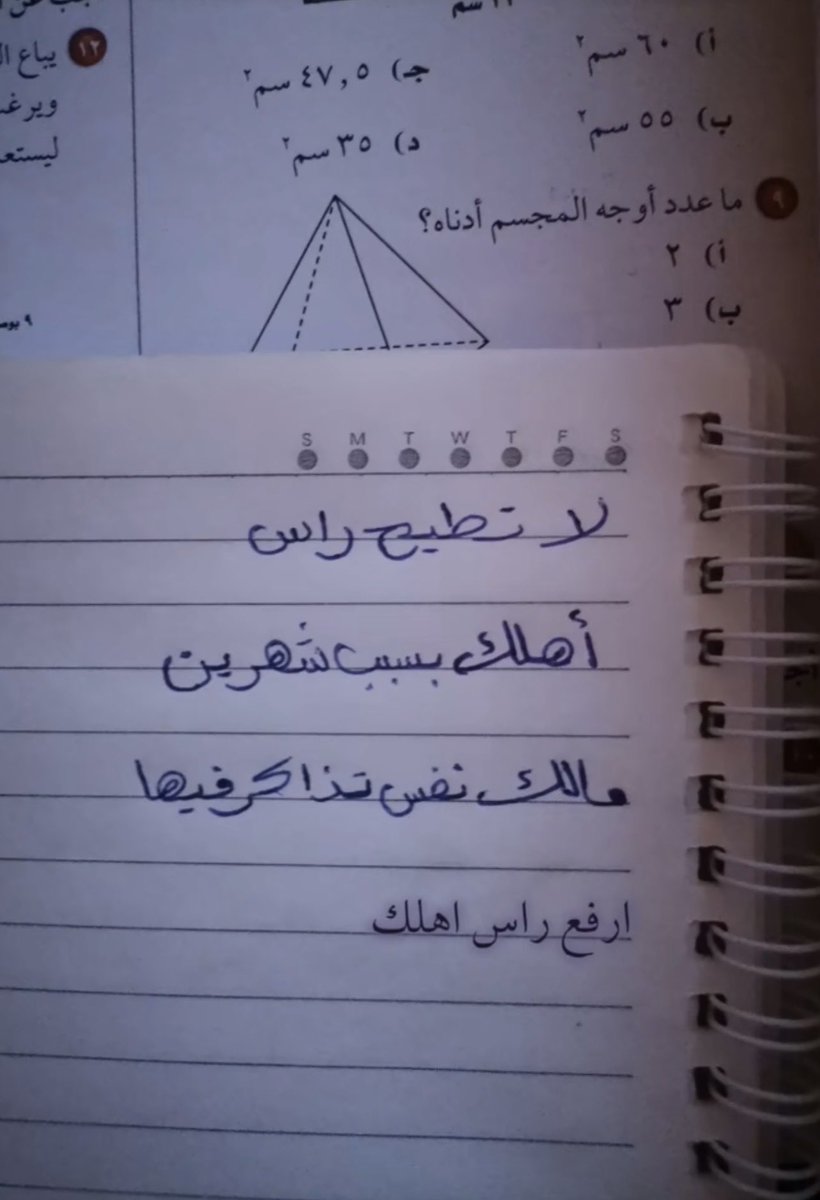 أ) ٦٠ سم٢
جـ) ٤٧,٥ سم٢
ب) ٥٥ سم٢
د) ٣٥ سم٢
٩ ما عدد أوجه المجسم أدناه؟
أ) ٢
ب) ٣
١٢ يباع
S M T W T F S
لا تطيح راس
أهلك بسبب شهرين
مالك نفس تذاكر فيها
ارفع راس اهلك